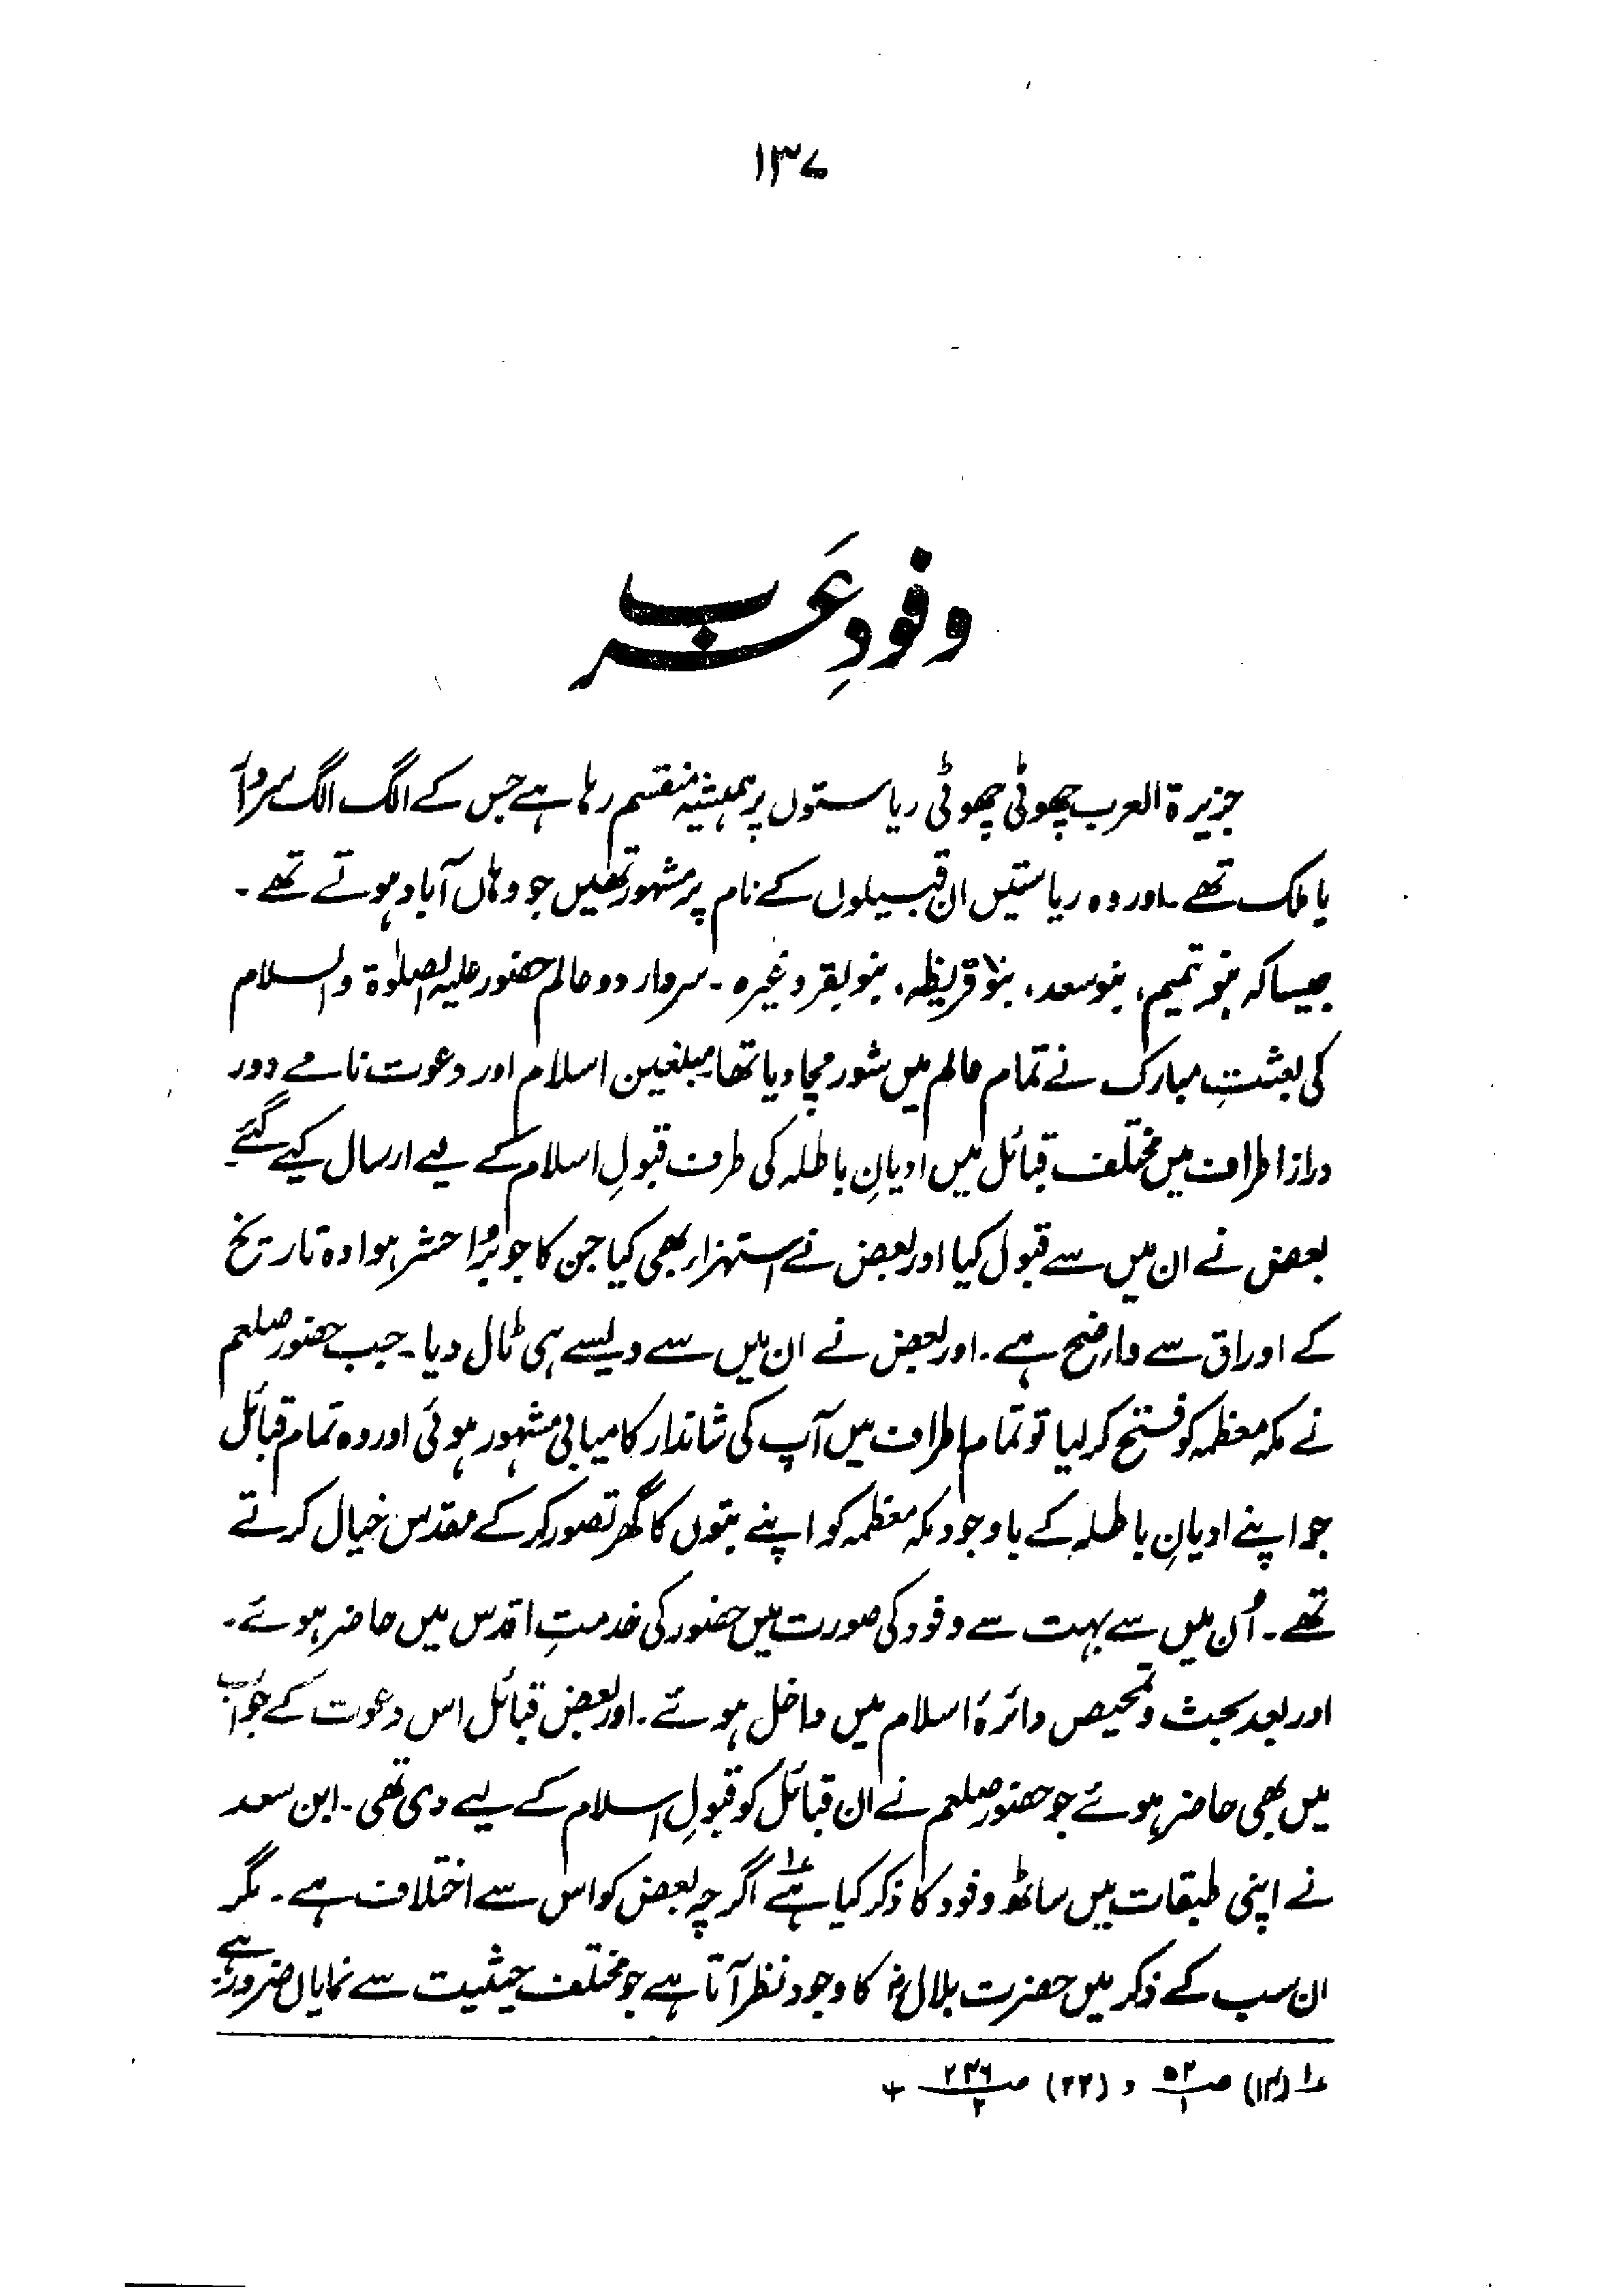 ۱۳۷
وفودِ عَرب
جزیرۃ العرب چھوٹی چھوٹی ریاستوں پر ہمیشہ منقسم رہا ہے جس کے الگ الگ سردار
یا ملک تھے۔ اور وہ ریاستیں ان قبیلوں کے نام پر مشہور تھیں جو وہاں آباد ہوتے تھے۔
جیسا کہ بنو تمیم، بنو سعد، بنو قریظہ، بنو بقر وغیرہ۔ سردار دو عالم حضور علیہ الصلوٰۃ والسلام
کی بعثتِ مبارک نے تمام عالم میں شور مچا دیا تھا مبلغین اسلام اور دعوت نامے دور
دراز اطراف میں مختلف قبائل میں ادیانِ باطلہ کی طرف قبولِ اسلام کے لیے ارسال کیے گئے۔
بعض نے ان میں سے قبول کیا اور بعض نے استہزاء بھی کیا جن کا جو بُرا حشر ہوا وہ تاریخ
کے اوراق سے واضح ہے۔ اور بعض نے ان میں سے ویسے ہی ٹال دیا۔ جب حضور صلعم
نے مکہ معظمہ کو فتح کر لیا تو تمام اطراف میں آپ کی شاندار کامیابی مشہور ہوئی اور وہ تمام قبائل
جو اپنے ادیانِ باطلہ کے باوجود مکہ معظمہ کو اپنے بتوں کا گھر تصور کر کے مقدس خیال کرتے
تھے۔ اُن میں سے بہت سے وفود کی صورت میں حضور کی خدمتِ اقدس میں حاضر ہوئے۔
اور بعد بحث و تمحیص دائرۂ اسلام میں داخل ہوئے۔ اور بعض قبائل اس دعوت کے جواب
میں بھی حاضر ہوئے جو حضور صلعم نے ان قبائل کو قبولِ اسلام کے لیے دی تھی۔ ابن سعد
نے اپنی طبقات میں ساٹھ وفود کا ذکر کیا ہے؏۱ اگرچہ بعض کو اس سے اختلاف ہے۔ مگر
ان سب کے ذکر میں حضرت بلالؓ کا وجود نظر آتا ہے جو مختلف حیثیت سے نمایاں ضرور ہے۔
؏۱ (۱۴) ص ۵۲/۱ و (۲۲) ص ۲۳۶/۲